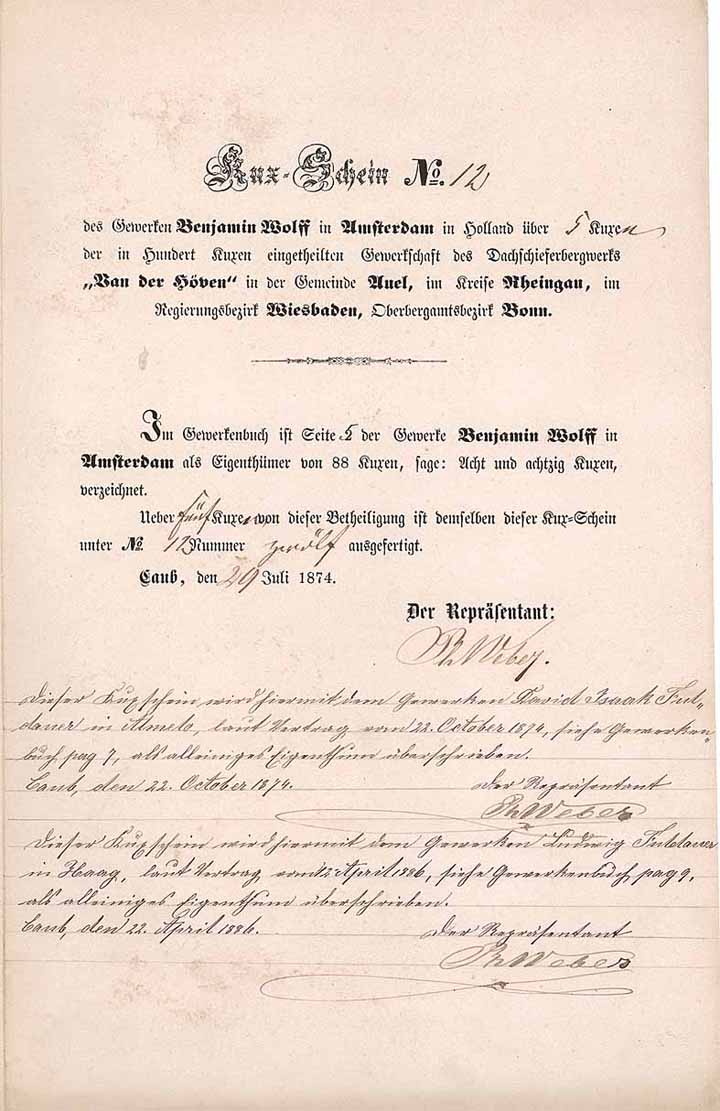 Kux-Schein No. 12
des Gewerken Benjamin Wolff in Amsterdam in Holland über 5 Kuxen
der in Hundert Kuxen eingetheilten Gewerkschaft des Dachschieferbergwerks
„Van der Höven“ in der Gemeinde Auel, im Kreise Rheingau, im
Regierungsbezirk Wiesbaden, Oberbergamtsbezirk Bonn.
Im Gewerkenbuch ist Seite 5 der Gewerke Benjamin Wolff in
Amsterdam als Eigenthümer von 88 Kuxen, sage: Acht und achtzig Kuxen,
verzeichnet.
Ueber fünf Kuxen von dieser Betheiligung ist demselben dieser Kux-Schein
unter No. 12 Nummer zwölf ausgefertigt.
Caub, den 29 Juli 1874.
Der Repräsentant:
Ph Weber.
Dieser Kuxschein wird hiermit dem Gewerken David Isaak Ful-
dauer in Almelo, laut Vertrag vom 22. October 1874, siehe Gewerken-
buch pag 7, als alleiniges Eigenthum überschrieben.
Caub, den 22. October 1874.
Der Repräsentant
Ph Weber
Dieser Kuxschein wird hiermit dem Gewerken Ludwig Fuldauer
in Haag, laut Vertrag vom April 1886, siehe Gewerkenbuch pag 9,
als alleiniges Eigenthum überschrieben.
Caub, den 22. April 1886.
Der Repräsentant
Ph Weber